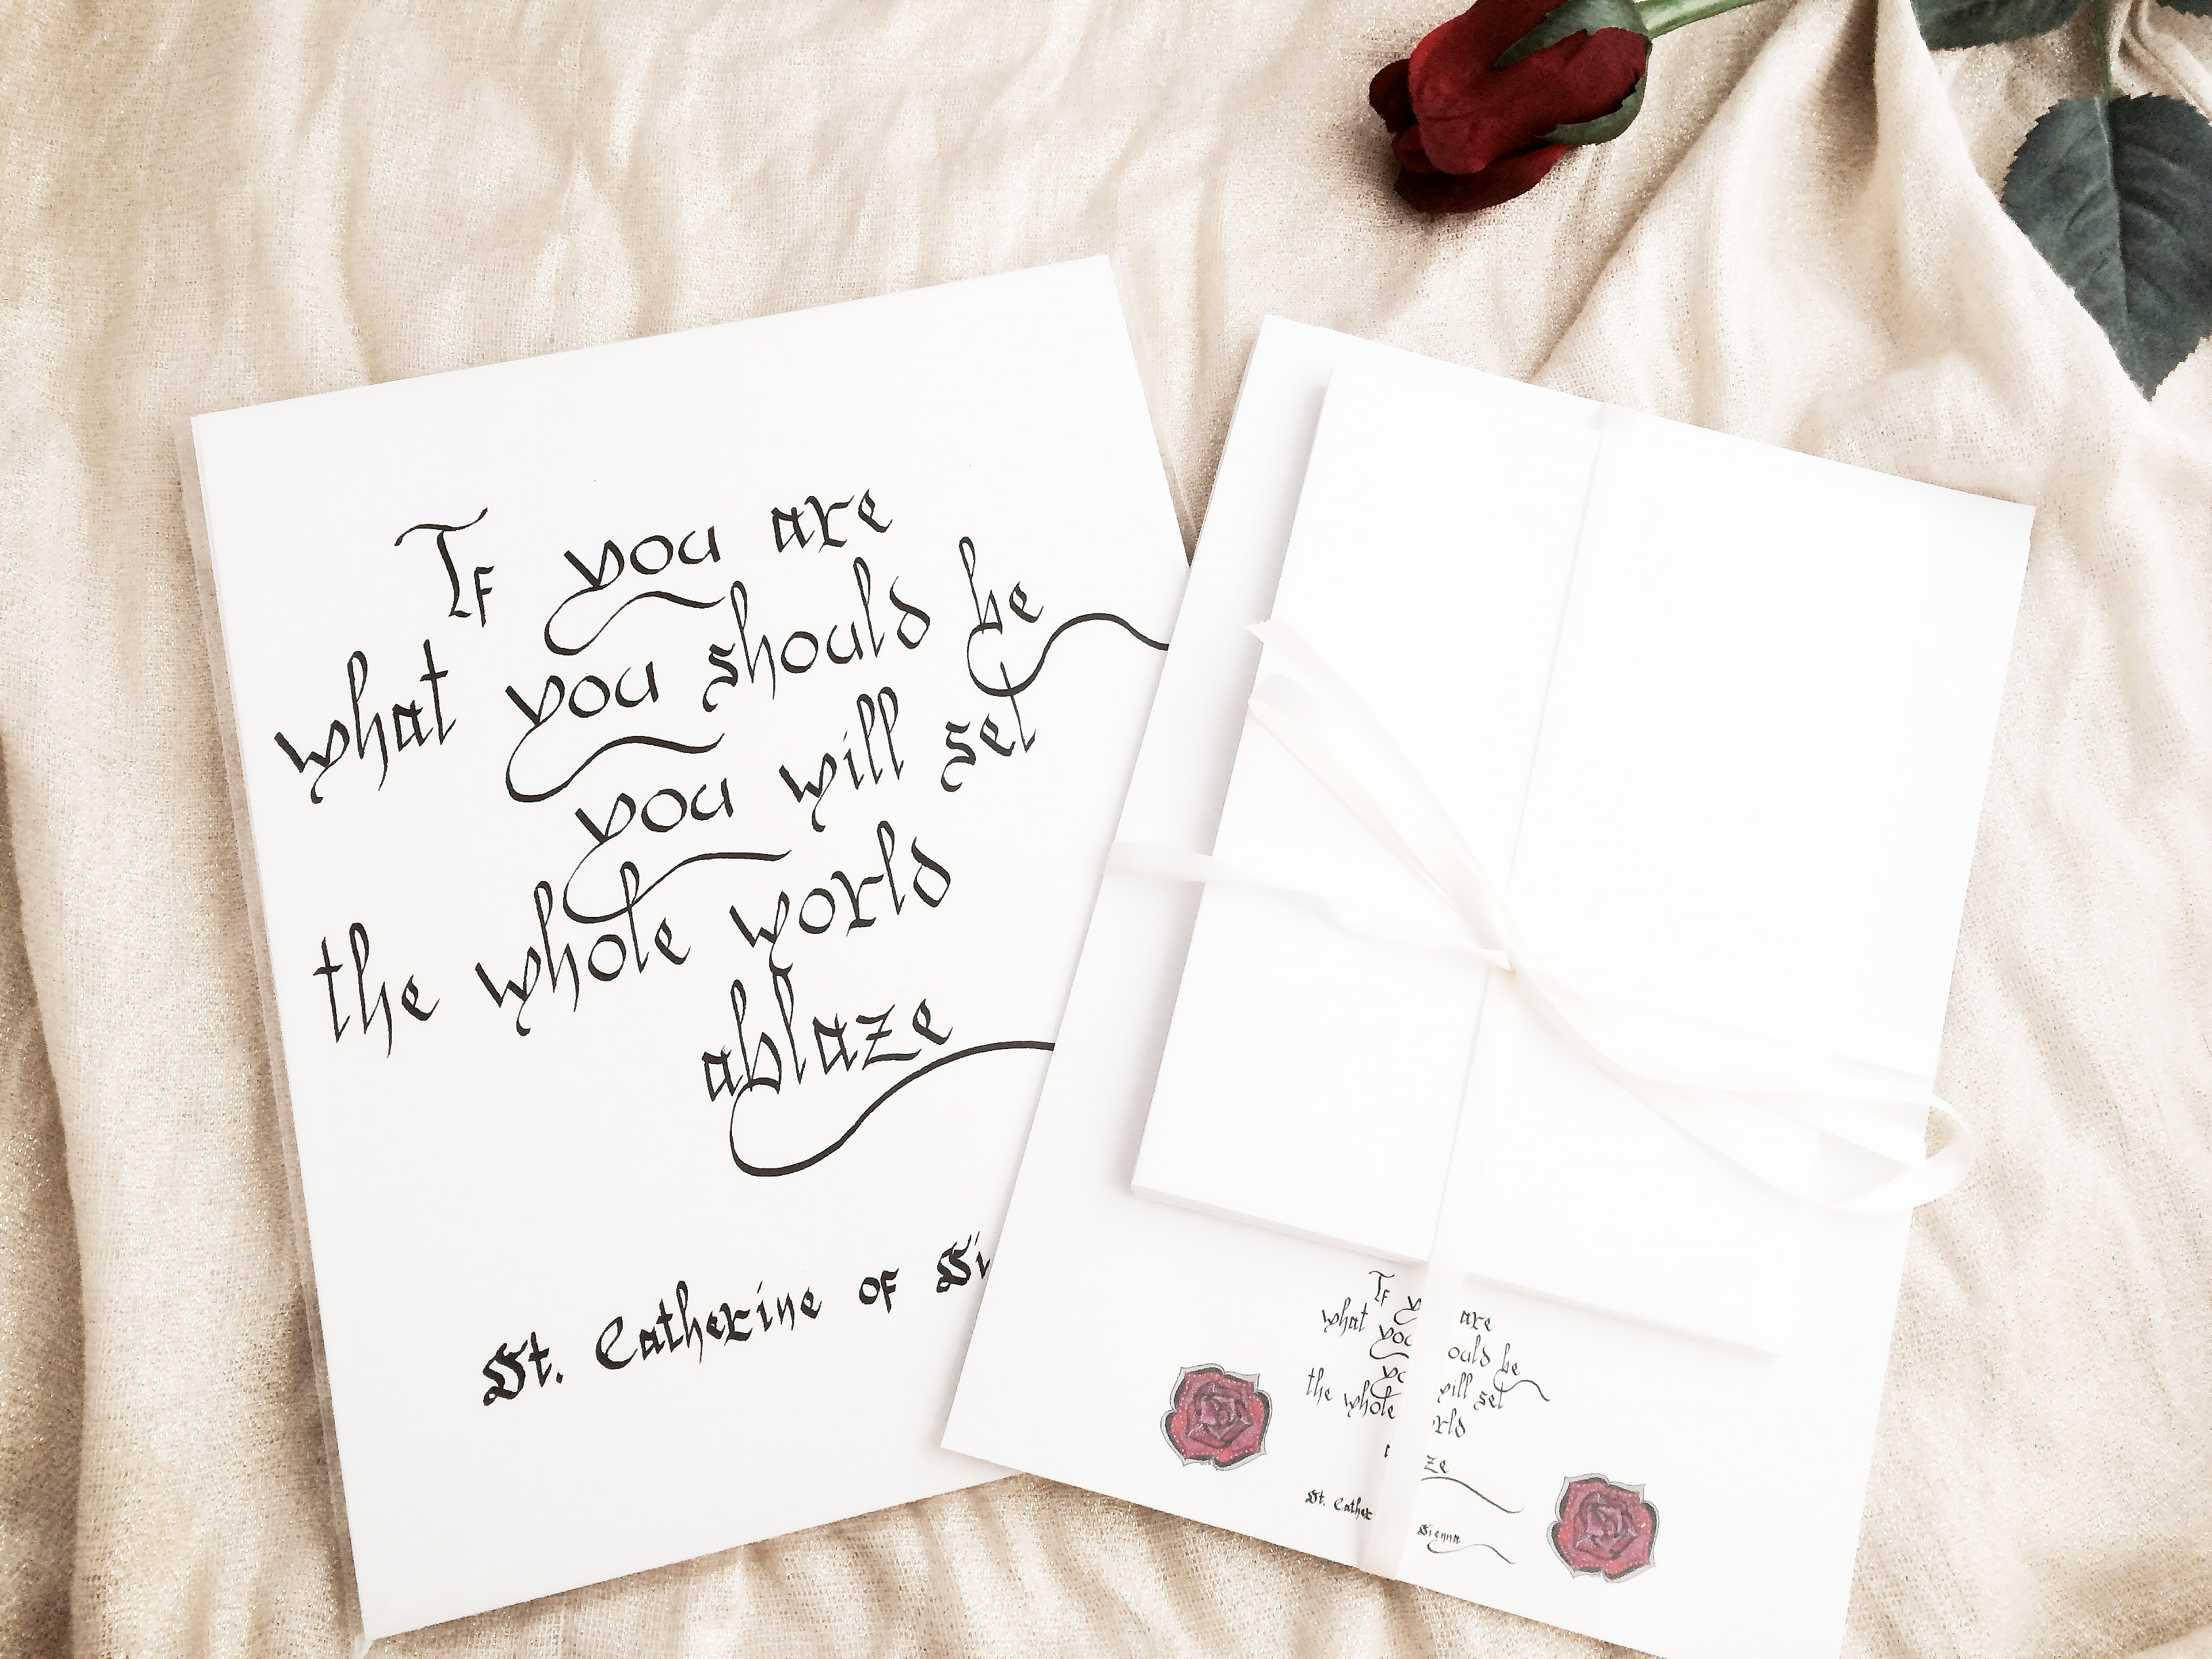 If you are
what you should be
you will set
the whole world
ablaze
St. Catherine of Si
If y are
what you ould be
yo will set
the whole rld
a ze
St. Cather Sienna